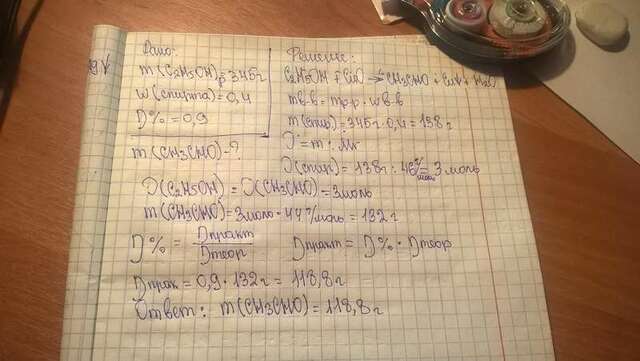 Дано:
m(C2H5OH)p=345г
w(спирта)=0,4
D%=0,9
m(CH3CHO)-?
Решение:
C2H5OH + CuO → CH3CHO + Cu + H2O
mв-в = mр.р · wв-в
m(спир)=345г·0,4=138г
D=m:Mr
D(спир)=138г:46г/моль=3моль
D(C2H5OH)=D(CH3CHO)=3моль
m(CH3CHO)=3моль·44г/моль=132г
D%=Dпракт/Dтеор Dпракт=D%·Dтеор
Dпрак=0,9·132г=118,8г
Ответ: m(CH3CHO)=118,8г